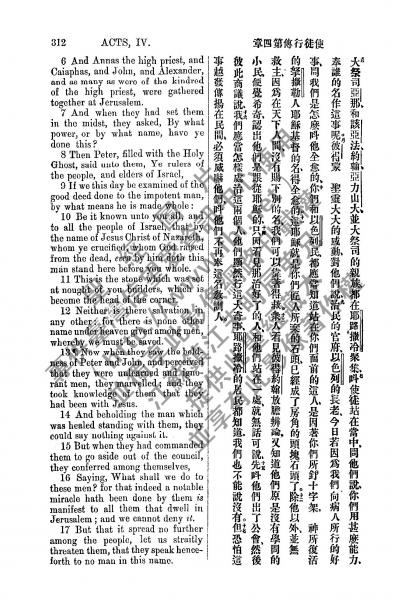 312 ACTS, IV.
6 And Annas the high priest, and
Caiaphas, and John, and Alexander,
and as many as were of the kindred
of the high priest, were gathered
together at Jerusalem.
7 And when they had set them
in the midst, they asked, By what
power, or by what name, have ye
done this?
8 Then Peter, filled with the Holy
Ghost, said unto them, Ye rulers of
the people, and elders of Israel,
9 If we this day be examined of the
good deed done to the impotent man,
by what means he is made whole;
10 Be it known unto you all, and
to all the people of Israel, that by
the name of Jesus Christ of Nazareth,
whom ye crucified, whom God raised
from the dead, even by him doth this
man stand here before you whole.
11 This is the stone which was set
at nought of you builders, which is
become the head of the corner.
12 Neither is there salvation in
any other: for there is none other
name under heaven given among men,
whereby we must be saved.
13 ¶ Now when they saw the bold-
ness of Peter and John, and perceived
that they were unlearned and igno-
rant men, they marvelled; and they
took knowledge of them that they
had been with Jesus.
14 And beholding the man which
was healed standing with them, they
could say nothing against it.
15 But when they had commanded
them to go aside out of the council,
they conferred among themselves,
16 Saying, What shall we do to
these men? for that indeed a notable
miracle hath been done by them is
manifest to all them that dwell in
Jerusalem; and we cannot deny it.
17 But that it spread no further
among the people, let us straitly
threaten them, that they speak hence-
forth to no man in this name.
使徒行傳第四章
大祭司亞那和該亞法約翰亞力山大並大祭司的親族都在耶路撒冷聚集叫使徒站在當中問他們說你們用甚麽能力
奉誰的名作這事呢彼得蒙 聖靈大大的感動對他們說治民的官府以色列的長老今日若因為我們向病人所行的好
事問我們是怎麽叫他全愈的你們和以色列民都應當知道站在你們面前的這人是因著你們所釘十字架 神所復活
的拏撒勒人耶穌基督的名得全愈的這耶穌就是你們匠人所棄的石頭已經成了房角的頭塊石頭了除他以外並無
救主因為在天下人間沒有賜下別的名我們可以靠著得救衆人看見彼得約翰放膽辨論又知道他們原是沒有學問的
小民便覺希奇認出他們是跟從耶穌的只因看見那治好了的人和他們站在一處就無話可說先叫他們出了公會然後
彼此商議說我們應當怎樣處治這兩個人他們顯然行這大奇事耶路撒冷的居民都知道我們也不能說沒有但恐怕這
事越發傳揚在民間必須威嚇他們叫他們不再奉這名教訓人